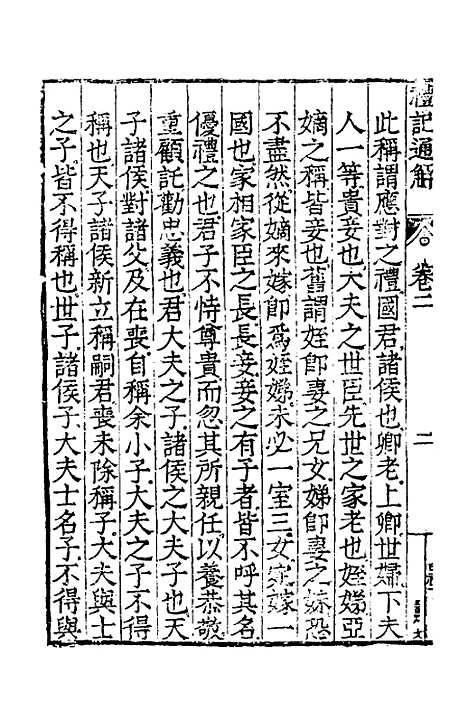 禮記通解 卷二 二
此稱謂應對之禮國君諸侯也卿老上卿世婦下夫
人一等貴妾也大夫之世臣先世之家老也姪娣亞
嫡之稱皆妾也舊謂姪卽妻之兄女娣卽妻之妹恐
不盡然從嫡來嫁卽爲姪娣未必一室三女定嫁一
國也家相家臣之長長妾妾之有子者皆不呼其名
優禮之也君子不恃尊貴而忽其所親任以養恭敬
重顧託勸忠義也君大夫之子諸侯之大夫子也天
子諸侯對諸父及在喪自稱余小子大夫之子不得
稱也天子諸侯新立稱嗣君喪未除稱子大夫與士
之子皆不得稱也世子諸侯子大夫士名子不得與